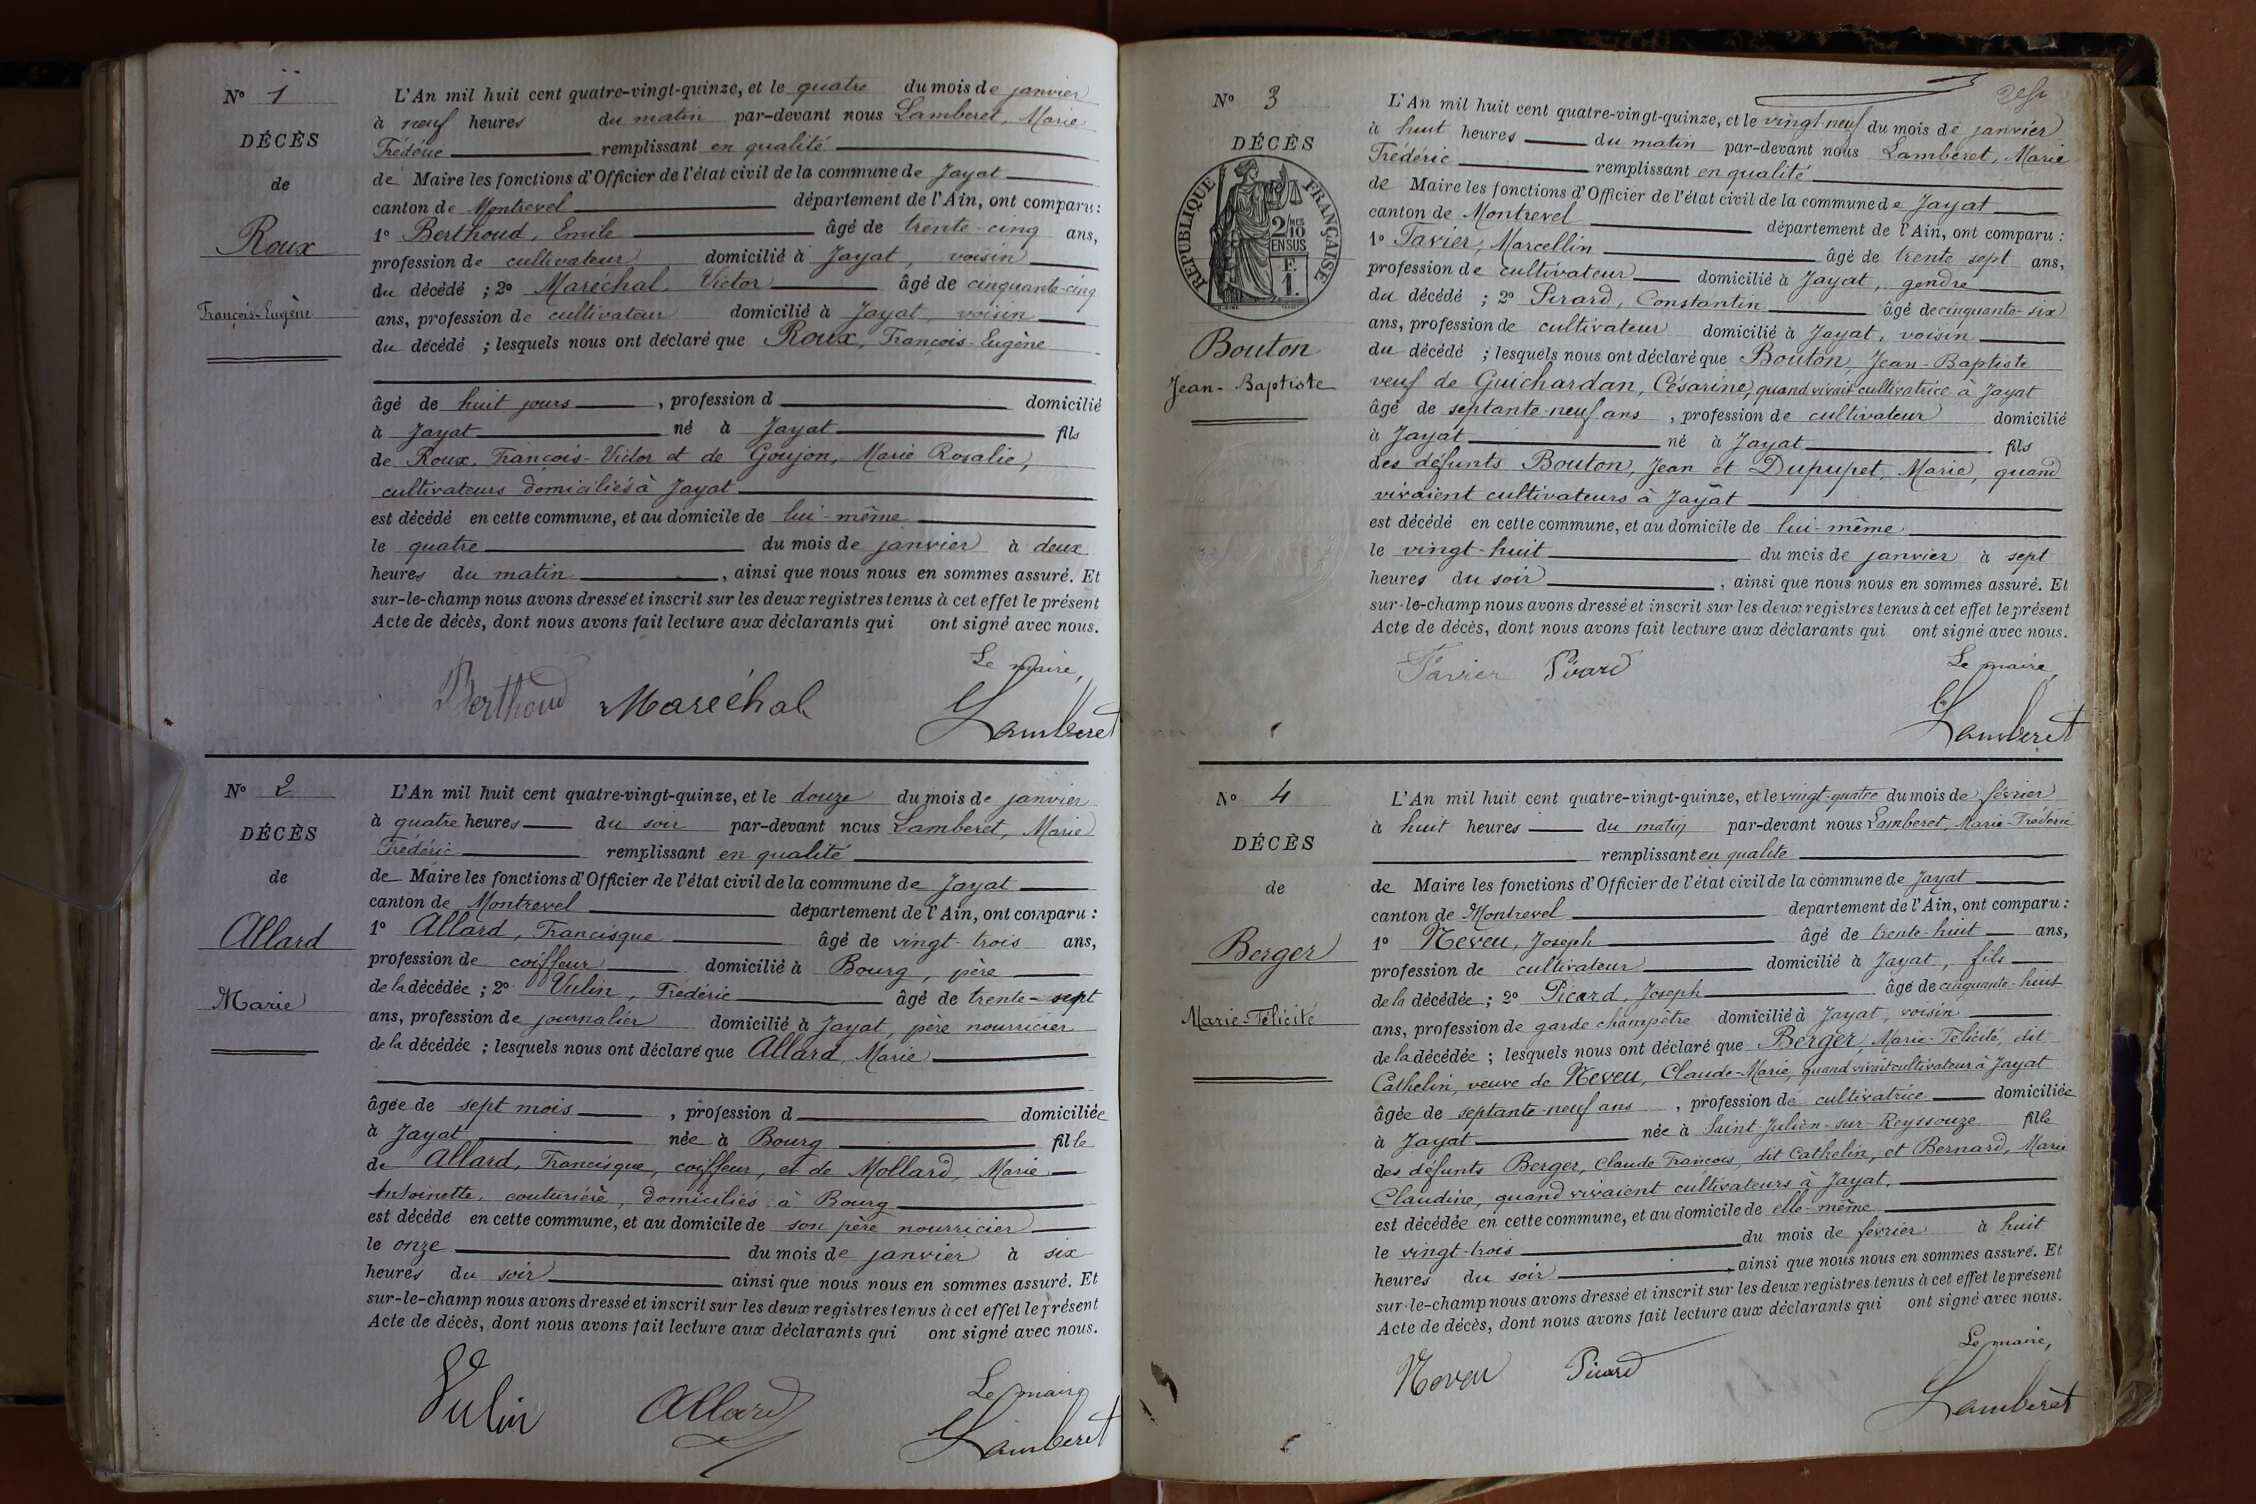 N° 1
DÉCÈS
de
Roux
François-Eugène
L'An mil huit cent quatre-vingt-quinze, et le quatre du mois de janvier
à neuf heures du matin par-devant nous Lamberet, Marie
Frédéric remplissant en qualité
de Maire les fonctions d'Officier de l'état civil de la commune de Jayat
canton de Montrevel département de l'Ain, ont comparu :
1° Berthoud, Emile âgé de trente-cinq ans,
profession de cultivateur domicilié à Jayat, voisin
du décédé ; 2° Maréchal, Victor âgé de cinquante-cinq
ans, profession de cultivateur domicilié à Jayat, voisin
du décédé ; lesquels nous ont déclaré que Roux, François-Eugène
âgé de huit jours, profession d domicilié
à Jayat né à Jayat fils
de Roux, François-Victor et de Goujon, Marie Rosalie,
cultivateurs domiciliés à Jayat
est décédé en cette commune, et au domicile de lui-même
le quatre du mois de janvier à deux
heures du matin, ainsi que nous nous en sommes assuré. Et
sur-le-champ nous avons dressé et inscrit sur les deux registres tenus à cet effet le présent
Acte de décès, dont nous avons fait lecture aux déclarants qui ont signé avec nous.
Le maire,
Berthoud Maréchal Lamberet
N° 2
DÉCÈS
de
Allard
Marie
L'An mil huit cent quatre-vingt-quinze, et le douze du mois de janvier
à quatre heures du soir par-devant nous Lamberet, Marie
Frédéric remplissant en qualité
de Maire les fonctions d'Officier de l'état civil de la commune de Jayat
canton de Montrevel département de l'Ain, ont comparu :
1° Allard, Francisque âgé de vingt-trois ans,
profession de coiffeur domicilié à Bourg, père
de la décédée ; 2° Vulin, Frédéric âgé de trente-sept
ans, profession de journalier domicilié à Jayat, père nourricier
de la décédée ; lesquels nous ont déclaré que Allard, Marie
âgée de sept mois, profession d domiciliée
à Jayat née à Bourg fille
de Allard, Francisque, coiffeur, et de Mollard, Marie
Antoinette, couturière, domiciliés à Bourg
est décédé en cette commune, et au domicile de son père nourricier
le onze du mois de janvier à six
heures du soir ainsi que nous nous en sommes assuré. Et
sur-le-champ nous avons dressé et inscrit sur les deux registres tenus à cet effet le présent
Acte de décès, dont nous avons fait lecture aux déclarants qui ont signé avec nous.
Le maire
Vulin Allard Lamberet
N° 3
DÉCÈS
RÉPUBLIQUE FRANÇAISE
2/10 MES
EN SUS
F.
1.
Bouton
Jean-Baptiste
L'An mil huit cent quatre-vingt-quinze, et le vingt-neuf du mois de janvier
à huit heures du matin par-devant nous Lamberet, Marie
Frédéric remplissant en qualité
de Maire les fonctions d'Officier de l'état civil de la commune de Jayat
canton de Montrevel département de l'Ain, ont comparu :
1° Tavier, Marcellin âgé de trente-sept ans,
profession de cultivateur domicilié à Jayat, gendre
du décédé ; 2° Pirard, Constantin âgé de cinquante-six
ans, profession de cultivateur domicilié à Jayat, voisin
du décédé ; lesquels nous ont déclaré que Bouton, Jean-Baptiste
veuf de Guichardan, Césarine, quand vivait cultivatrice à Jayat
âgé de septante-neuf ans, profession de cultivateur domicilié
à Jayat né à Jayat fils
des défunts Bouton, Jean et Dupupet, Marie, quand
vivaient cultivateurs à Jayat
est décédé en cette commune, et au domicile de lui-même
le vingt-huit du mois de janvier à sept
heures du soir, ainsi que nous nous en sommes assuré. Et
sur-le-champ nous avons dressé et inscrit sur les deux registres tenus à cet effet le présent
Acte de décès, dont nous avons fait lecture aux déclarants qui ont signé avec nous.
Le maire
Tavier Lamberet
N° 4
DÉCÈS
de
Berger
Marie-Félicité
L'An mil huit cent quatre-vingt-quinze, et le vingt-quatre du mois de février
à huit heures du matin par-devant nous Lamberet, Marie-Frédéric
remplissant en qualité
de Maire les fonctions d'Officier de l'état civil de la commune de Jayat
canton de Montrevel département de l'Ain, ont comparu :
1° Neveu, Joseph âgé de trente-huit ans,
profession de cultivateur domicilié à Jayat, fils
de la décédée ; 2° Picard, Joseph âgé de cinquante-huit
ans, profession de garde champêtre domicilié à Jayat, voisin
de la décédée ; lesquels nous ont déclaré que Berger, Marie-Félicité, dit
Cathelin, veuve de Neveu, Claude-Marie, quand vivait cultivateur à Jayat
âgée de septante-neuf ans, profession de cultivatrice domiciliée
à Jayat née à Saint-Julien-sur-Reyssouze fille
des défunts Berger, Claude François, dit Cathelin, et Bernard, Marie
Claudine, quand vivaient cultivateurs à Jayat,
est décédée en cette commune, et au domicile de elle-même
le vingt-trois du mois de février à huit
heures du soir, ainsi que nous nous en sommes assuré. Et
sur-le-champ nous avons dressé et inscrit sur les deux registres tenus à cet effet le présent
Acte de décès, dont nous avons fait lecture aux déclarants qui ont signé avec nous.
Le maire,
Neveu Picard Lamberet